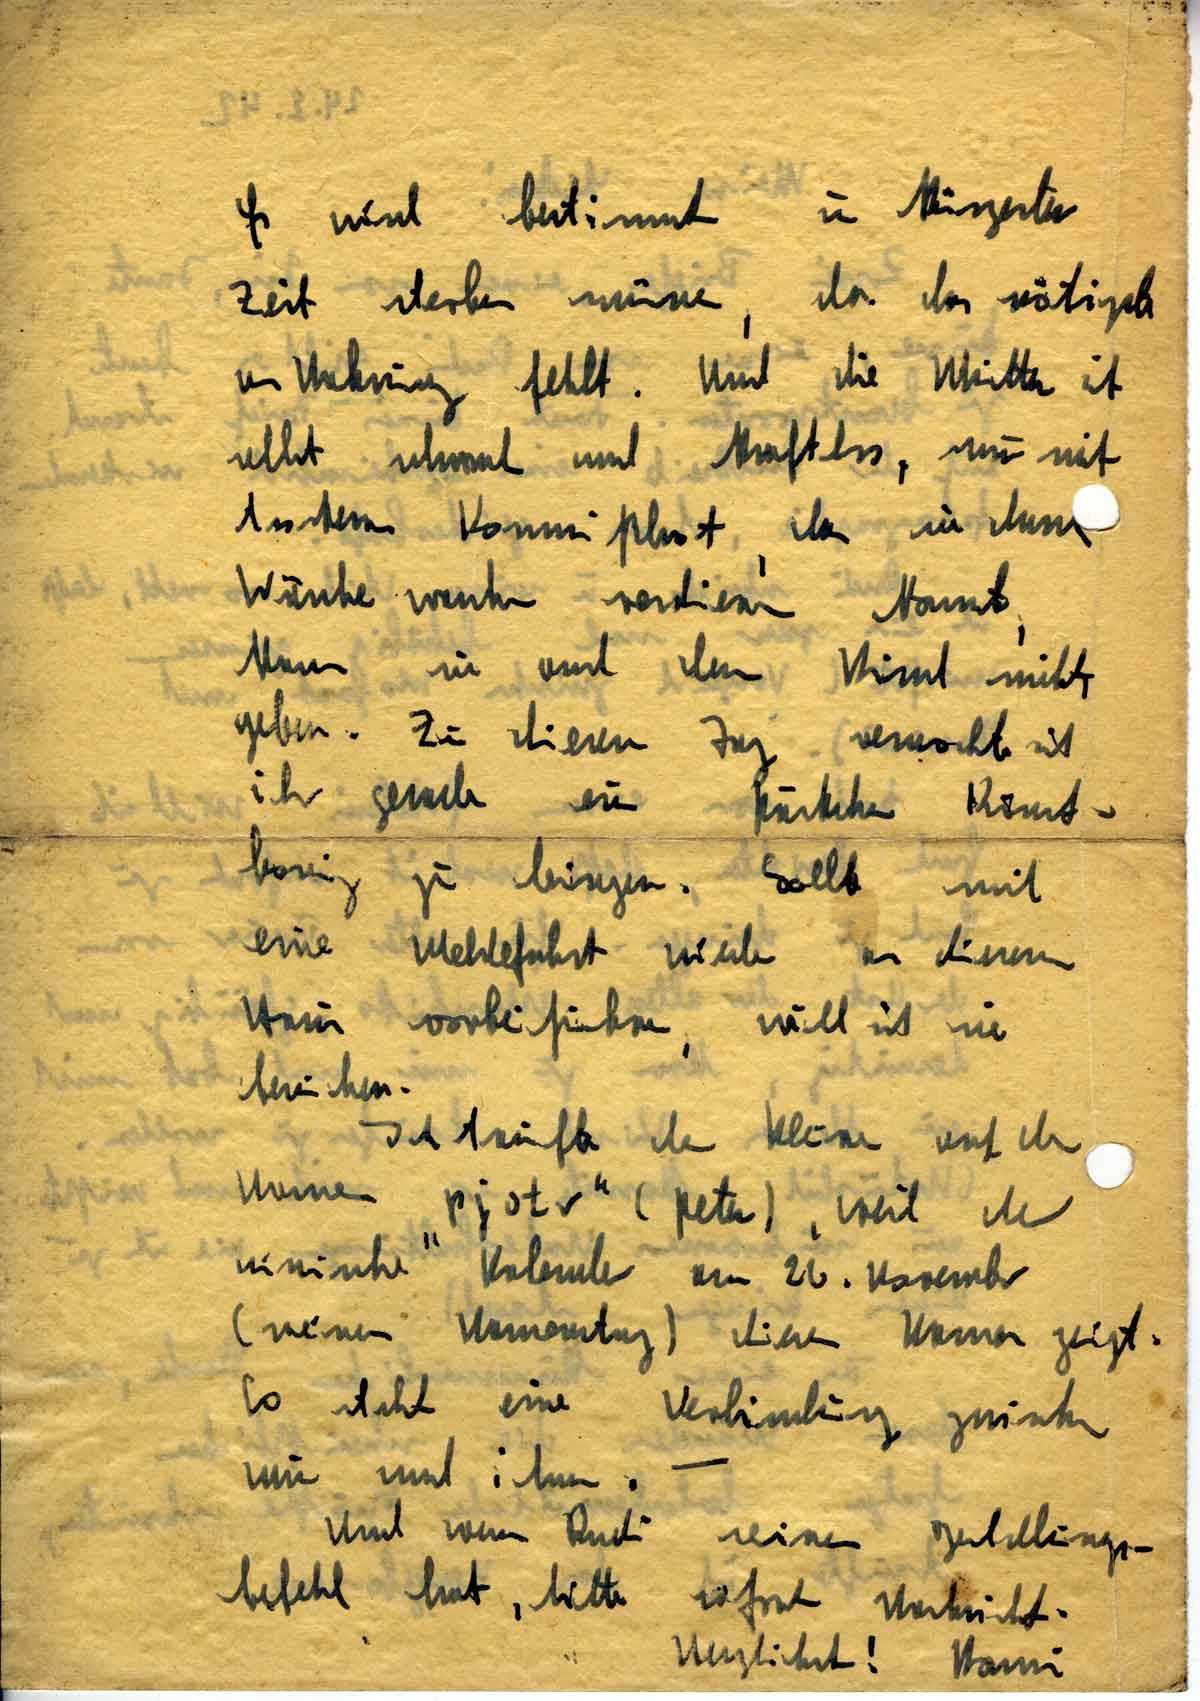 Es wird bestimmt in kürzester
Zeit sterben müssen, da das nötigste
an Nahrung fehlt. Und die Mutter ist
selbst schwach und kraftlos, nur mit
trockenem Kommißbrot, das sie durch
Wäsche waschen verdienen konnte,
kann sie auch dem Kind nichts
geben. Zu diesem Tag versuchte ich
ihr gerade ein Päckchen Kunst-
honig zu bringen. Sollte mich
eine Meldefahrt wieder an diesem
Haus vorbeiführen, will ich sie
besuchen.
Ich taufte den Kleinen auf den
Namen "Pjotr" (Peter), weil der
russische Kalender am 26. November
(meinen Namenstag) diesen Namen zeigt.
So steht eine Verbindung zwischen
mir und ihm. —
Und wenn Rudi seinen Gestellungs-
befehl hat, bitte sofort Nachricht.
Herzlichst! Hanni
24.2.42